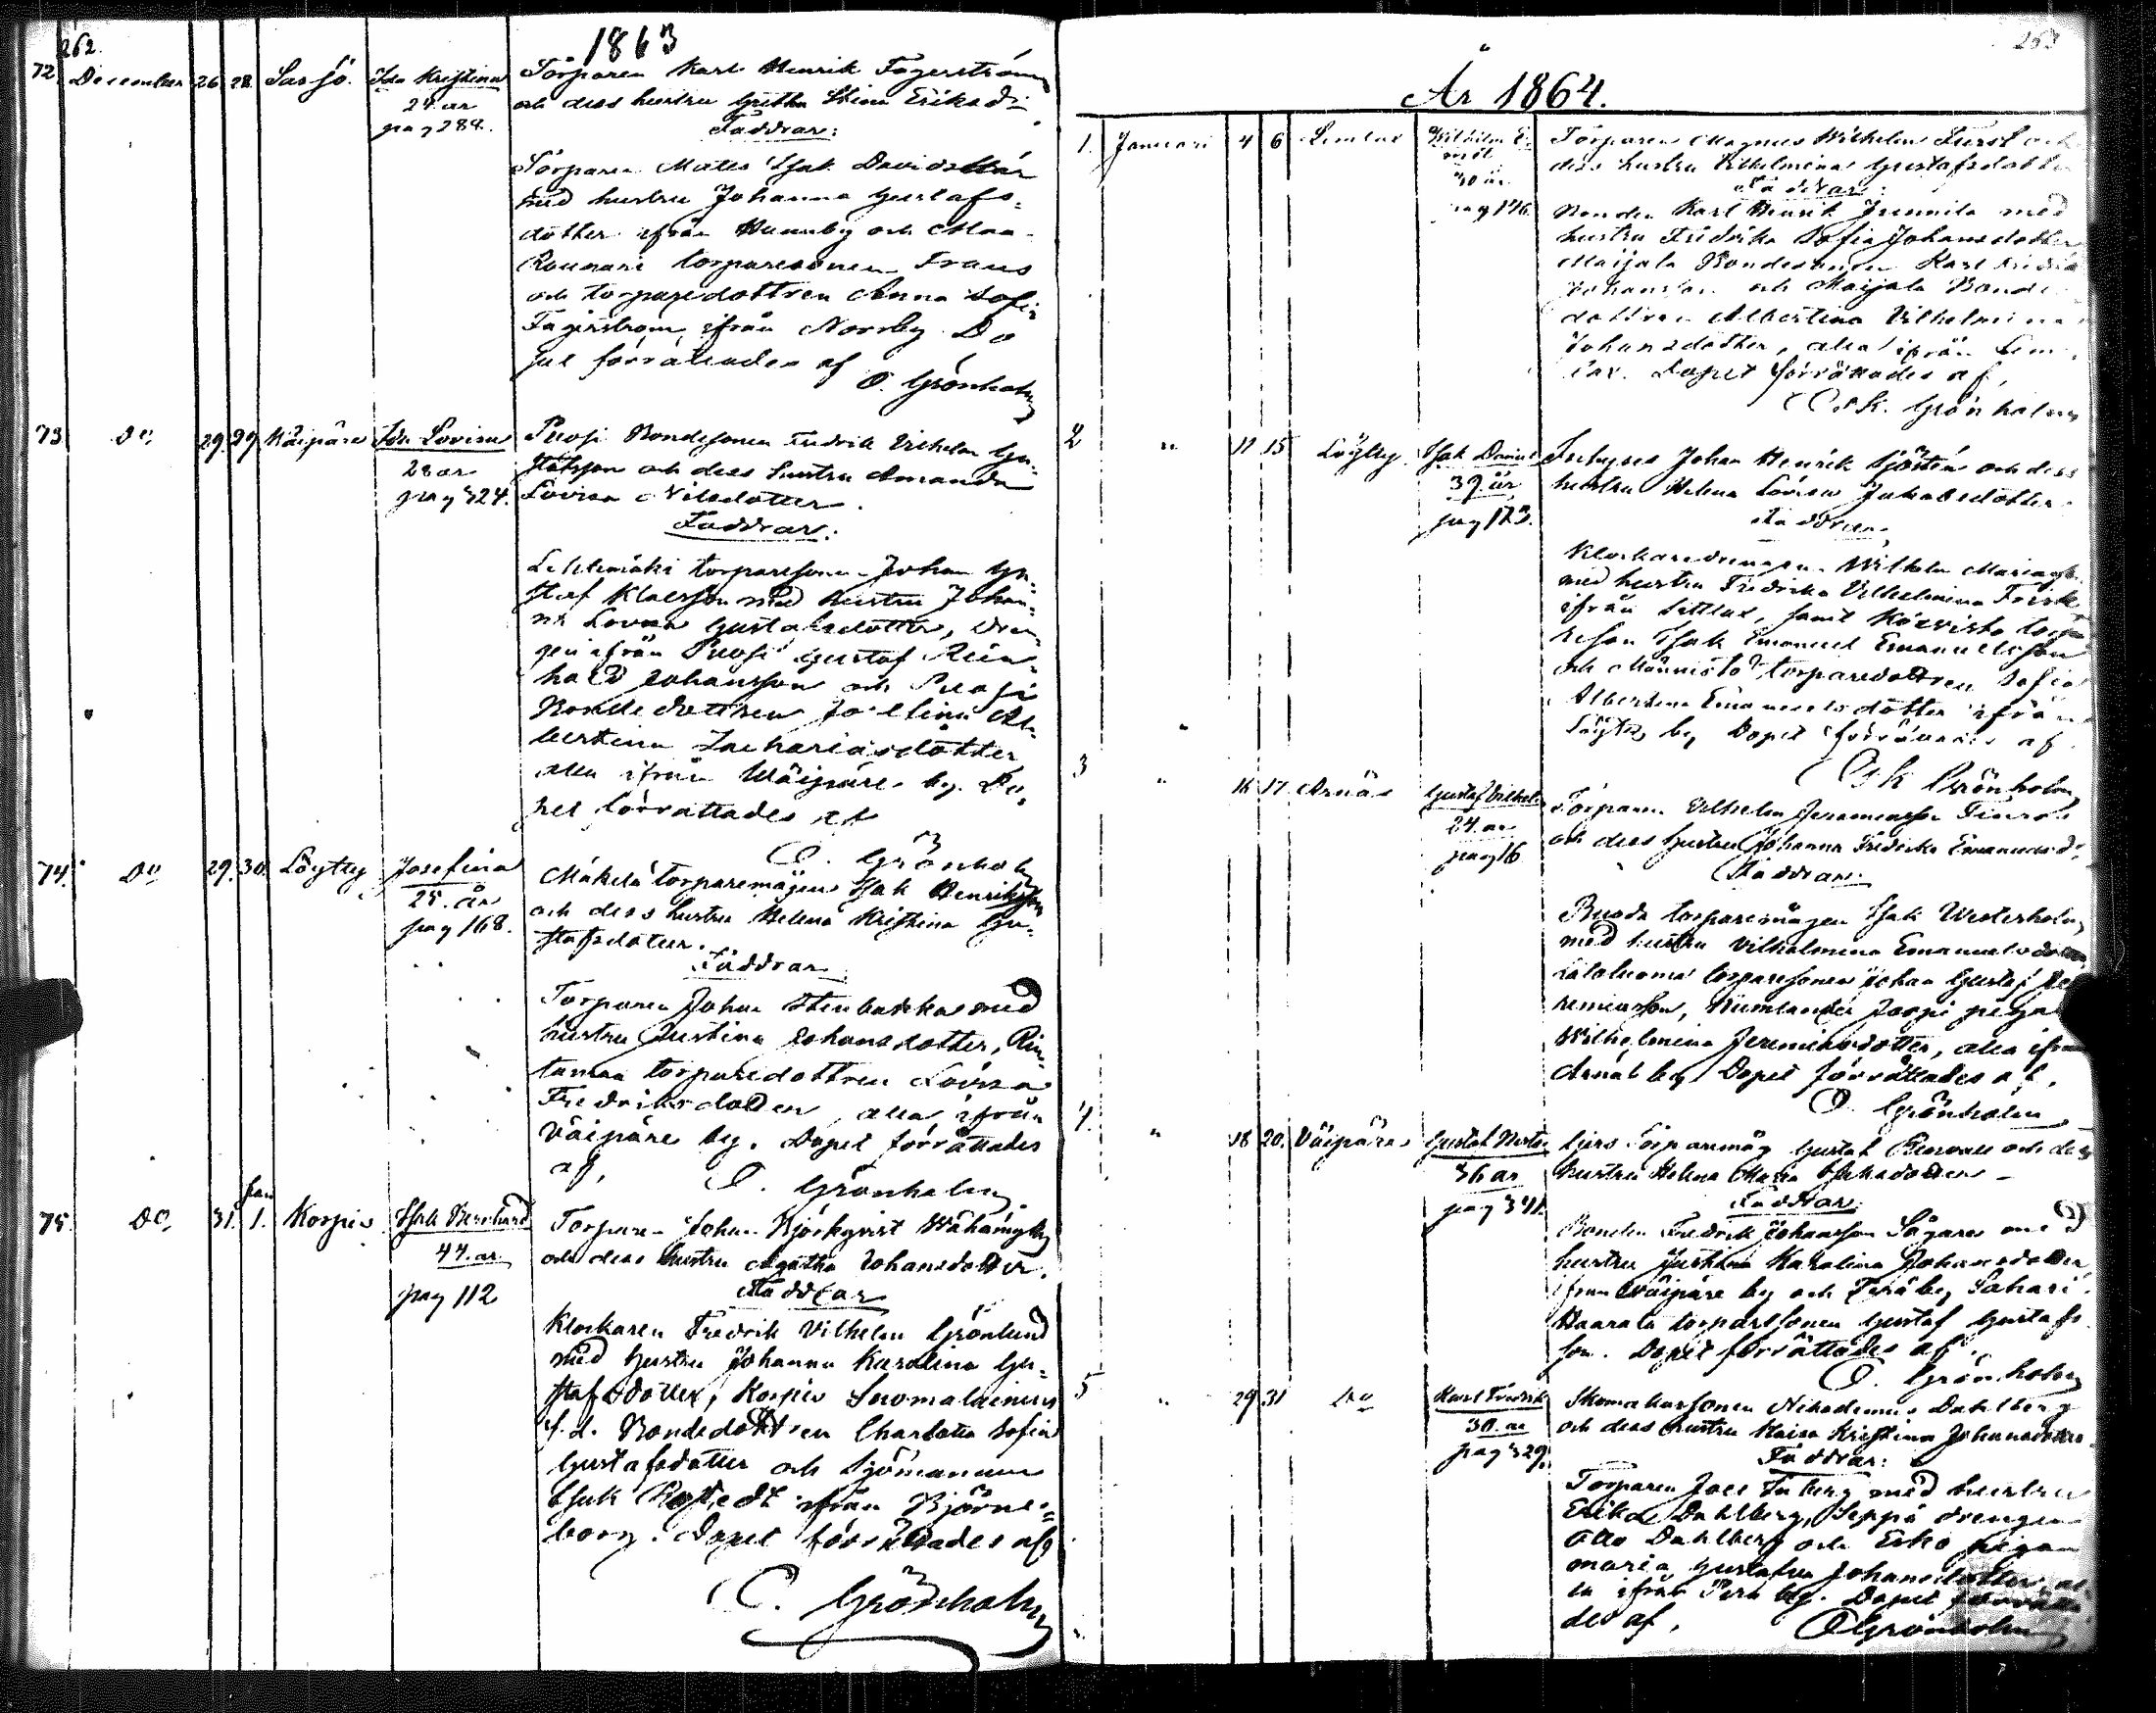 262.
1863
72. December 26 28. Sasjö. Ida Kristina
24. år
pag 284.
Torparen Karl Henrik Fagerström
och dess hustru Gretha Stina Eriksdr
Faddrar:
Torparen Matts Isak Davidsson
med hustru Johanna Gustafs-
dotter ifrån Hunnby och
torparesonen Frans
och torparedottren Anna Sofia
Fagerström, ifrån Norrby. Do
pet förrättades af
O. Grönholm
73. Do 29. 29. Wäipäre Ida Lovisa
28 år
pag 324.
Puosi Bondesonen Fredrik Vilhelm Gu-
stafsson och dess hustru Amanda
Lovisa Nilsdotter.
Faddrar:
Lehtimäki torparesonen Johan Gu-
staf Klaesson med hustru Johan-
na Lovisa Gustafsdotter, Dren-
gen ifrån Puosi Gustaf Rein-
hold Johansson och Puosi
Bondedottren Josefina Al-
bertina Zachariasdotter
alla ifrån Wäipäre by. Do-
pet förrättades af
O. Grönholm
74. Do 29. 30. Löytty Josefina
25. år
pag 168.
Mäkelä torparemågen Isak Henriksson
och dess hustru Helena Kristina Gu-
stafsdotter.
Faddrar
Torparen Johan Stenbacka med
hustru Justina Johansdotter, Rin-
tamaa torparedottren Lovisa
Fredriksdotter, alla ifrån
Väipäre by. Dopet förrättades
af,
O. Grönholm
75. Do 31. Jan 1. Korpis Isak Bernhard
44. år
pag 112
Torparen Johan Björkqvist Wähämylly
och dess hustru Agatha Johansdotter.
Faddrar
Klockaren Fredrik Vilhelm Grönlund
med hustru Johanna Karolina Gu-
stafsdotter, Korpis Suomalainens
f.d. Bondedottren Charlotta Sofia
Gustafsdotter och Sjömannen
Isak ifrån Björne-
borg. Dopet förrättades af
O. Grönholm
263
År 1864.
1. Januari 4 6 Lemlax Wilhelm
30 år
pag 146.
Torparen Magnus Wilhelm Fürst och
dess hustru Vilhelmina Gustafsdotter
Faddrar:
Bonden Karl Henrik Junnila med
hustru Fredrika Sofia Johansdotter
Maijala Bondesonen Karl Fredrik
Johansson och Maijala Bonde
dottren Albertina Vilhelmina
Johansdotter, alla ifrån Lem-
lax. Dopet förrättades af,
Osk. Grönholm
2 " 11 15 Löytty. Isak Daniel
39 år
pag 173.
Inhyses Johan Henrik Sjöstén och dess
hustru Helena Lovisa Jakobsdotter.
Faddrar
Klockaredrengen Wilhelm
med hustru Fredrika Vilhelmina Frisk
ifrån Sattlax, samt Koivisto torpa
reson Isak Emanuel Emanuelsson
och Männistö torparedottren Sofia
Albertina Emanuelsdotter ifrån
Löytty by Dopet förrättades af
Osk Grönholm
3 " 16 17. Arnäs Gustaf Vilhelm
24. år
pag 16
Torparen Vilhelm Jeremiasson
och dess hustru Johanna Fredrika Emanuelsdr
Faddrar:
Ruoda torparemågen Isak Westerholm
med hustru Vilhelmina Emanuelsdotter,
torparesonen Johan Gustaf Je
remiasson, pigan
Wilhelmina Jeremiasdotter, alla ifrån
Arnäs by Dopet förrättades af,
O. Grönholm
4. " 18 20. Väipäre Gustaf
36 år
pag 341.
Torparemåg Gustaf och dess
hustru Helena Maria Isaksdotter
Faddrar:
Bonden Fredrik Johansson Sågare med
hustru Justina Karolina Johansdotter
ifrån Wäipäre by och Terä by Sahari
Haarala torparesonen Gustaf Gustafs
son. Dopet förrättades af.
O. Grönholm
5 " 29. 31 Do Karl Fredrik
30. år
pag 329.
Skomakarsonen Nikodemus Dahlberg
och dess hustru Maisa Kristina Johansdotter.
Faddrar:
Torparen Joel Enberg med hustru
Erika Dahlberg, Seppä drengen
Otto Dahlberg och Erko pigan
Maria Gustafva Johansdotter, al-
la ifrån Perk by. Dopet förrätta
des af,
O Grönholm